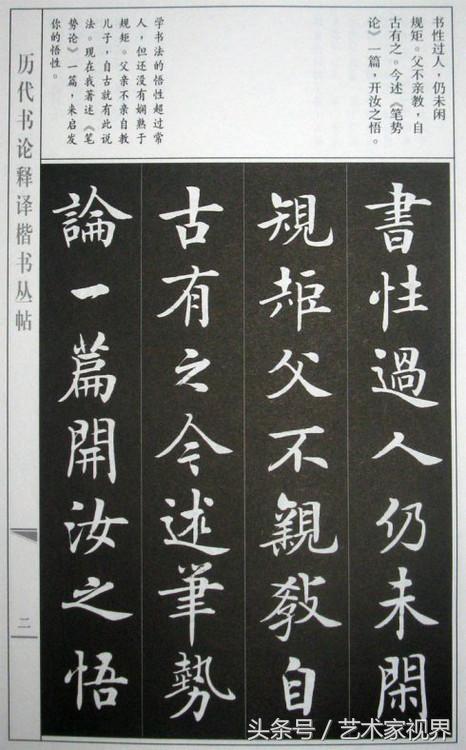 书性过人，仍未闲
规矩。父不亲教，自
古有之。今述《笔势
论》一篇，开汝之悟。
学书法的悟性超过常
人，但还没有娴熟于
规矩。父亲不亲自教
儿子，自古就有此说
法。现在我著述《笔
势论》一篇，来启发
你的悟性。
書性過人仍未閑
規矩父不親教自
古有之今述筆勢
論一篇開汝之悟
历代书论释译楷书丛帖
二
头条号／艺术家视界